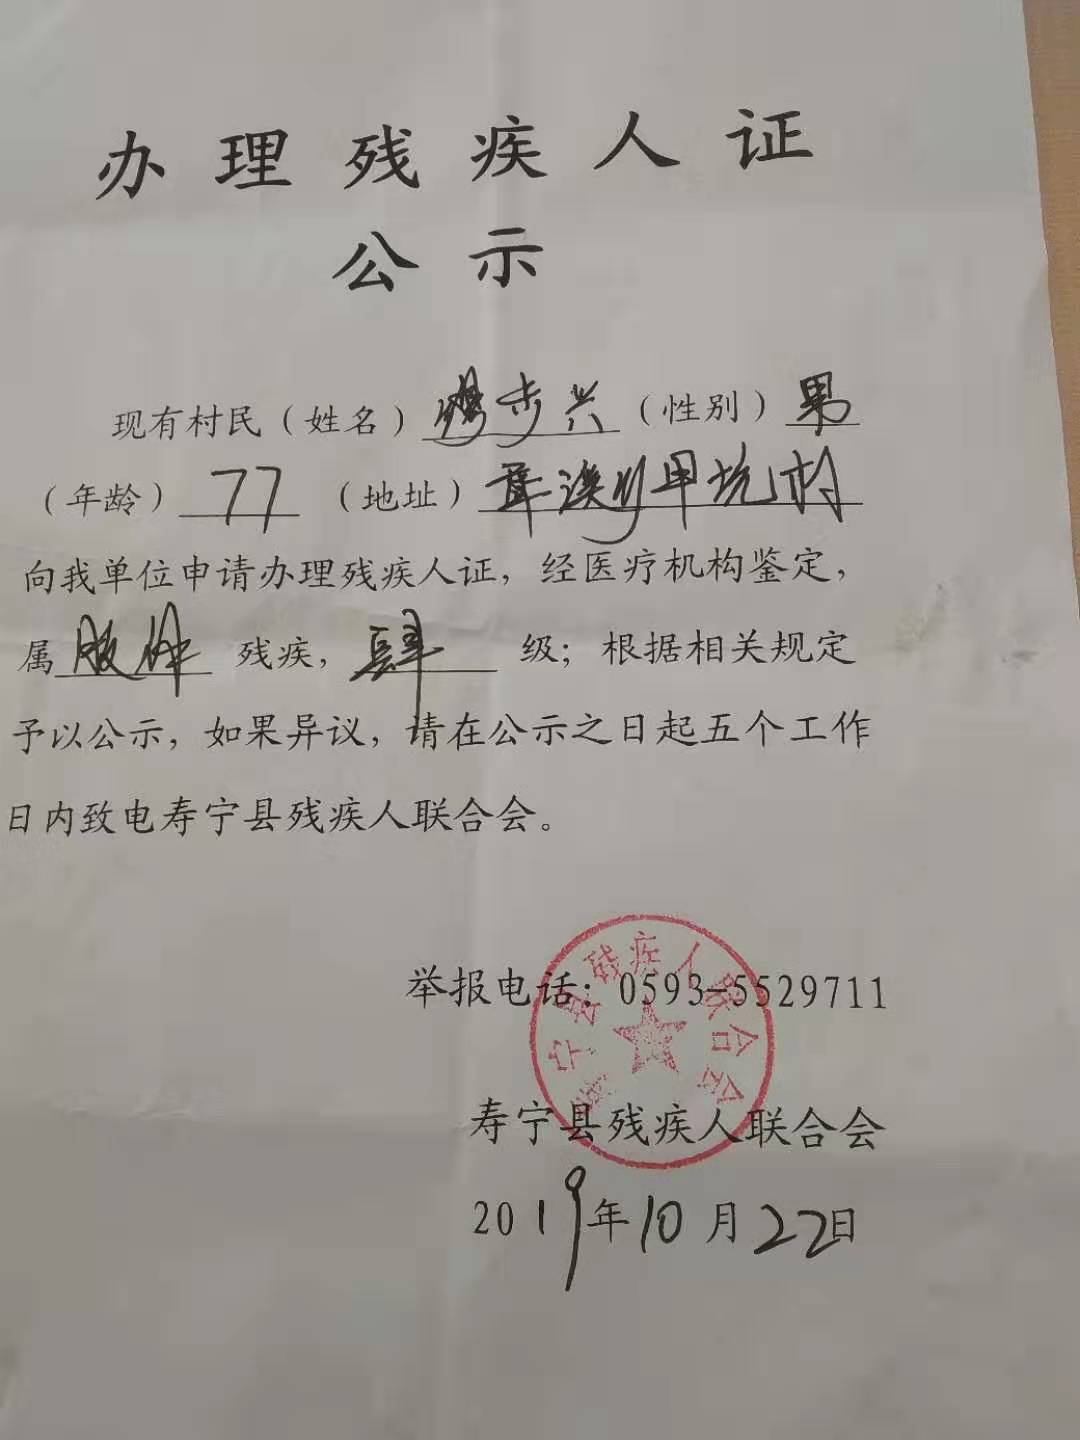 办理残疾人证
公示
现有村民（姓名）缪步兴（性别）男
（年龄）77（地址）犀溪乡甲坑村
向我单位申请办理残疾人证，经医疗机构鉴定，
属肢体残疾，肆级；根据相关规定
予以公示，如果异议，请在公示之日起五个工作
日内致电寿宁县残疾人联合会。
举报电话：0593-5529711
寿宁县残疾人联合会
寿宁县残疾人联合会
2019年10月22日